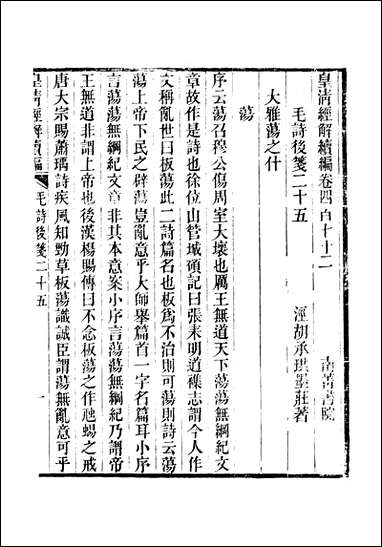 皇清經解續編卷四百七十二 南菁書院
毛詩後箋二十五 涇胡承珙墨莊著
大雅蕩之什
蕩
序云蕩召穆公傷周室大壞也厲王無道天下蕩蕩無綱紀文
章故作是詩也徐位山管城碩記曰張耒明道襍志謂今人作
文稱亂世曰板蕩此二詩篇名也板爲不治則可蕩則詩云蕩
蕩上帝下民之辟蕩豈亂意乎大師舉篇首一字名篇耳小序
言蕩蕩無綱紀文章非其本意案小序言蕩蕩無綱紀乃謂帝
王無道非謂上帝也後漢楊賜傳曰不念板蕩之作虺蜴之戒
唐太宗賜蕭瑀詩疾風知勁草板蕩識誠臣謂蕩無亂意可乎
皇清經解續編 毛詩後箋二十五 一